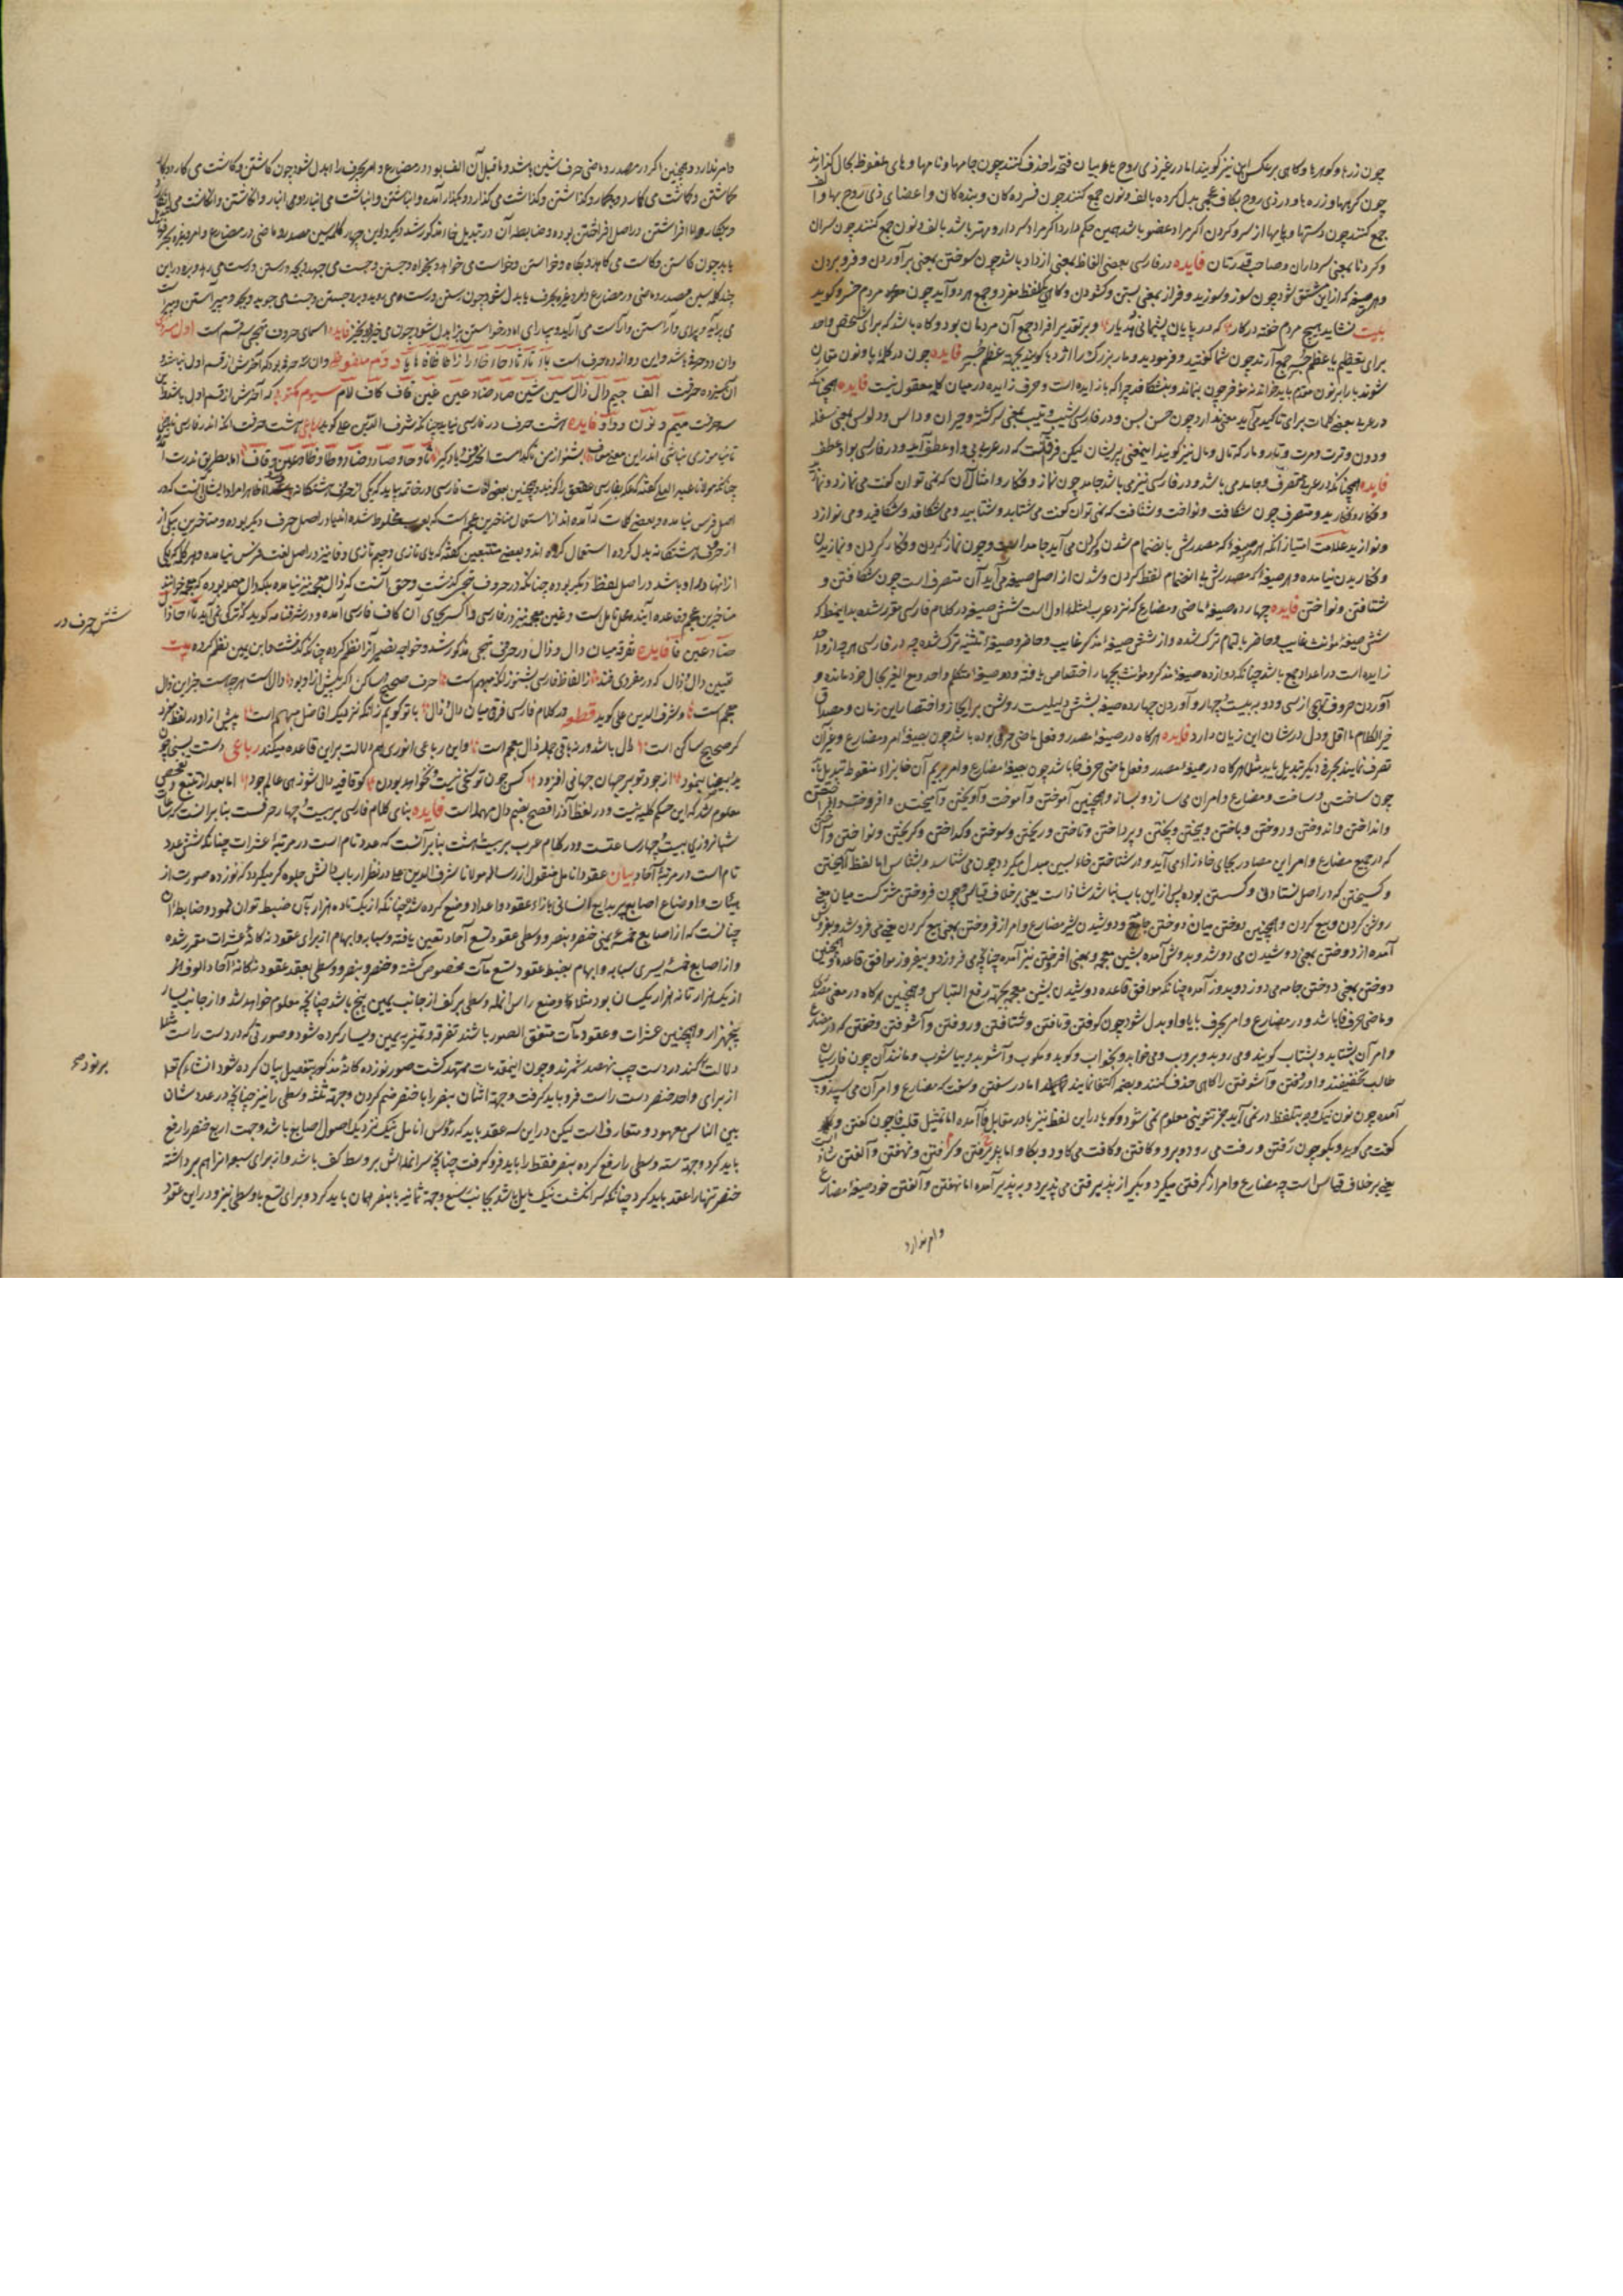 چون زرها و کوهرها و کاهی برعکس این نیز کویند اما در غیر ذی روح هاء بیان فتحه را حذف کنند چون جامها و نامها و های ملفوظ بحال کذارند
چون کرهها و زرهها و در ذی روح بکاف عجمی بدل کرده بالف و نون جمع کنند چون فسرده کان و بنده کان و اعضای ذی روح بها و الف
جمع کنند چون دستها و پایها از سر و کردن اکر مراد عضو باشد همین حکم دارد و اکر مراد سردار و مهتر باشد بالف و نون جمع کنند چون سران
و کردنان بمعنی سرداران و صاحب قدرتان فایده در فارسی بعضی الفاظ بمعنی ازداد باشد چون سوختن بمعنی برآوردن و فرو بردن
و هر صیغه که از این مشتق شود چون سوز و سوزید و فراز بمعنی بستن و کشودن و کاهی یکلفظ مفرد و جمع هر دو آید چون مردم خسرو کوید
بیت نشاید هیچ مردم خفته در کار که در پایان پشیمانی دهد بار و بر تقدیر افراد جمع آن مردمان بود و کاه باشد که برای شخص واحد
برای تعظیم یا عظم جسم جمع آرند چون شما کفتید و فرمودید و مار بزرک را اژدها کویند بجهة عظم جسم فایده چون در کلمه با و نون مقارن
شوند با را بر نون مقدم باید خواند نه مؤخر چون بنماند و بنشکافد چرا که با زایده است و حرف زایده در میان کلمه معقول نیست فایده همچنانکه
در عربیه بعضی کلمات برای تاکید می آید معنی ندارد چون حسن بسن و در فارسی شیب و تیب بمعنی سرکشته و حیران و داس و دلوس بمعنی سفله
و دون و ترت و مرت و تار و مار که تال و مال نیز کویند اینمعنی پریشان لیکن فرق آنست که در عربیه بی واو عطف آید و در فارسی بواو عطف
فایده همچنانکه در عربیه متصرف و جامد می باشد و در فارسی نیز می باشد جامد چون نماز و فکار و امثال آن که نمی توان کفت می نمازد و نمازید
و فکارد و فکارید و متصرف چون شکافت و نواخت و شتافت که می توان کفت می شتابد و شتابید و می شکافد و شکافید و می نوازد
و نوازید علامت امتیاز آنکه هر صیغهٔ که مصدرش بانضمام شدن و کردن می آید جامد است چون نماز کردن و فکار کردن و نمازیدن
و فکاریدن نیامده و هر صیغهٔ که مصدرش بی انضمام لفظ کردن و شدن از اصل صیغه می آید آن متصرف است چون شکافتن و
شتافتن و نواختن فایده چهارده صیغهٔ ماضی و مضارع که نزد عرب امثلهٔ اول است شش صیغه در کلام فارسی مقرر شده بدینخط که
شش صیغهٔ مونث غایب و حاضر بالتمام ترک شده و از شش صیغهٔ مذکر غایب و حاضر دو صیغهٔ تثنیه ترک شده چه در فارسی هر چه از واحد
زایده است در اعداد جمع باشد چنانکه دوازده صیغهٔ مذکر و مونث بچهار اختصاص یافته و دو صیغهٔ متکلم واحد و مع الغیر بحال خود مانده و
آوردن حروف تهجی از سی و دو به بیست و چهار و آوردن چهارده صیغه بشش دلیلیست روشن بر ایجاز و اختصار این زمان و مصداق
خیر الکلام ما اقل و دل در شان این زبان دارد فایده هر کاه در صیغهٔ مصدر و فعل ماضی حرفی بوده باشد چون بصیغهٔ امر و مضارع و غیر آن
تصرف نمایند بحرف دیکر تبدیل یابد مثلا هر کاه در صیغهٔ مصدر و فعل ماضی حرف خا باشد چون بصیغهٔ مضارع و امر بریم آن خا بزاء منقوط تبدیل یابد
چون ساختن و ساخت و مضارع و امر آن می سازد و بساز و همچنین آموختن و آموخت و آویختن و آمیختن و افروختن و افراختن
و انداختن و اندوختن و دوختن و باختن و بیختن و پختن و پرداختن و تاختن و ریختن و سوختن و کداختن و کریختن و نواختن و
که در جمیع مضارع و امر این مصادر بجای خاء زاء می آید و در شناختن خاء بسین مبدل میکردد چون می شناسد و بشناس اما لفظ آهیختن
و کسیختن که در اصل و کسستن بوده پس از این باب نباشد شاذ است یعنی برخلاف قیاس و چون فروختن مشترکست میان معنی
روشن کردن و بیع کردن و همچنین دوختن میان دوختن جامه و دوشیدن شیر مضارع و امر از فروختن بمعنی بیع کردن می فروشد و بفروش
آمده از دوختن بمعنی دوشیدن می دوشد و بدوش آمده بشین معجمه و بمعنی افروختن نیز آمده چنانچه می فروزد و بیفروز موافق قاعده و همچنین
دوختن بمعنی دوختن جامه می دوزد و بدوز آمده چنانکه موافق قاعده دوشیدن بشین معجمه بجهة رفع التباس و همچنین هر کاه در معنی مصدر
و ماضی حرف فا باشد و در مضارع و امر بحرف با یا واو بدل شود چون کوفتن و تافتن و شتافتن و روفتن و آشوفتن و خفتن که در مضارع
و امر آن بشتابد و بشتاب کویند و می روبد و بروب و می خوابد و بخواب و کوبد و بکوب و آشوبد و بیاشوب و مانند آن چون فارسیان
طالب تخفیفند واو خفتن و آشوفتن را کاهی حذف کنند و بضمه اکتفا نمایند اما در سفتن و سفت که مضارع و امر آن می سنبد و
آمده چون نون نیک بتلفظ در نمی آید بجز تنوینی معلوم نمی شود و کویا در این لفظ نیز با در مقابل فا آمده اما تمثیل قلب فا چون کفتن و
کفت می کوید و بکو چون رفتن و رفت می رود و برو و کافتن و کافت می کاود و بکاو اما پذیرفتن و کرفتن و نهفتن و آلفتن شاذ است
یعنی برخلاف قیاس است چه مضارع و امر از کرفتن میکیرد و بکیر از پذیرفتن می پذیرد و بپذیر آمده اما نهفتن و آلفتن خود صیغهٔ مضارع
وامر ندارد
وامر ندارد و همچنین اکر در مصدر و ماضی حرف شین باشد و ماقبل آن الف بود در مضارع و امر بحرف را بدل شود چون کاشتن و کاشت می کارد و کار
و کذاشتن و کذاشت می کذارد و بکذار آمده و انباشتن و انباشت می انبارد و انبار و انکاشتن و انکاشت می انکارد
افراشتن در اصل افراختن بوده و ضابطه آن در تبدیل خاء مذکور شد و دیکر در این چهار کلمه سین مصدر و ماضی در مضارع و امر
یابد چون کاستن و کاست می کاهد و بکاه و خواستن و خواست می خواهد و بخواه و جستن و جست می جهد و بجه و رستن و رست می رهد و بره در این
چند کلمه سین مصدر و ماضی در مضارع و امر و غیره بحرف یا بدل شود چون رستن و رست می روید و برو و جستن و جست می جوید و بجو و پیراستن و پیراست
می پیراید و پیرای و آراستن و آراست می آراید و بیارای اما در خواستن بزا بدل شود چون می خیزد و بخیز فایده اسمای حروف تهجی سه قسم است اول مسروری
وان دو حرفی باشد و این دوازده حرف است با تا ثا حا خا را زا طا ظا فا ها یا دوم ملفوظی وان سه حرفی بود که آخرش از قسم اول نباشد و
آن سیزده حرفست الف جیم دال ذال سین شین صاد ضاد عین غین قاف کاف لام سیوم مکتوبی که آخرش از قسم اول باشد و این
سه حرفست میم و نون و واو فایده هشت حرف در فارسی نیاید چنانکه شرف الدین علی کوید رباعی هشت حرفست آنکه اندر فارسی ناید همی
تا نیاموزی نباشی اندر این معنی معاف بشنو از من تا کدامست آن حروف و یاد کیر ثا و حا و صاد و ضاد و طا و ظا و عین و قاف اما بطریق ندرت آید
چنانکه مولانا عبد العلی کفته که عکه بفارسی عقعق را کویند و همچنین بعضی لغات فارسی در خاتمه بیاید که یکی از حروف هشتکانه باشد ظاهرا مراد ایشان آنست که در
اصل فرس نیامده و بعضی کلمات که آمده اند از استعمال متاخرین عجم است که بعرب مخلوط شده اند یا در اصل حرف دیکر بوده و متاخرین بیکی از
از حروف هشتکانه بدل کرده استعمال کرده اند و بعضی متتبعین کفته که بای تازی و جیم تازی و فا نیز در اصل لغت فرس نیامده و هر کلمه که یکی
ازانها در او باشد در اصل بلفظ دیکر بوده چنانکه در حروف تهجی کذشت و حق آنست که ذال معجمه نیز نیامده بلکه دال مهمله بوده که معجمه خوانند
متاخرین عجم و قاعده آینده محل تامل است و غین معجمه نیز در فارسی و اکثر بجای آن کاف فارسی آمده و در شرفنامه کوید که ترکی نمی آید ثا حا ذال
ضاد عین فا فایده تفرقه میان دال و ذال در حروف تهجی مذکور شد و خواجه نصیر آنرا نظم کرده چنانکه کذشت و ابن یمین نظم کرده بیت
تعیین دال و ذال که در مفردی فتد ز الفاظ فارسی بشنو زانکه مبهم است حرف صحیح ساکن اکر پیش از او بود دال است هر چه هست جز این ذال
معجم است و شرف الدین علی کوید قطعه در کلام فارسی فرق میان دال و ذال با تو کویم زانکه نزدیک افاضل مبهم است پیش از او در لفظ مفرد
کر صحیح ساکن است دال باشد ورنه باقی جمله ذال معجم است و این رباعی انوری هم دلالت بر این قاعده میکند رباعی دستت بسخا چون
ید بیضا بنمود از جود تو بر جهان جهانی افزود کس چون تو سخی نیست و نخواهد بودن کو قافیه دال شو زهی عالم جود اما بعد از تتبع و تفحص
معلوم شد که این حکم کلیه نیست و در لفظ آذر افصح بضم دال مهمله است فایده بنای کلام فارسی بر بیست و چهار حرفست بنابر آنست که ساعات
شبانروزی بیست و چهار ساعتست و در کلام عرب بر بیست و هشت بنابر آنست که عدد تام است در مرتبهٔ عشرات چنانکه شش عدد
تام است در مرتبهٔ آحاد بیان عقود انامل منقول از رساله مولانا شرف الدین علی در نظر ارباب دانش جلوه کر میکردد که نوزده صورت از
هیئات و اوضاع اصابع بدایع انسانی بازاء عقود و اعداد وضع کرده شده چنانکه از یک تا ده هزار بآن ضبط توان نمود و ضابطه آن
چنانست که از اصابع خمسه یمنی خنصر و بنصر و وسطی عقود تسع آحاد تعین یافته و سبابه و ابهام از برای عقود نه کانهٔ عشرات مقرر شده
و از اصابع خمسهٔ یسری سبابه و ابهام بضبط عقود تسع مآت مخصوص کشته و خنصر و بنصر و وسطی بعقد عقود نه کانهٔ آحاد الوف
از یک هزار تا نه هزار یکسان بود مثلا وضع راس انمله وسطی بر کف از جانب یمین پنج باشد چنانچه معلوم خواهد شد و از جانب یسار
پنجهزار و همچنین عشرات و عقود مآت متفق الصور باشند تفرقه و تمیز به یمین و یسار کرده شود و صورتی که در دست راست مثلا
دلالت بر کند در دست چپ نهصد شمرند و چون اینمقدمات ممهد کشت صور نوزده کانهٔ مذکور بتفصیل بیان کرده شود انشاء الله تعالی
از برای واحد خنصر دست راست فرو باید کرفت و جهة اثنان بنصر را با خنصر ضم کردن و جهة ثلثه وسطی را نیز چنانچه در عد شان
بین الناس معهود و متعارفست لیکن در این سه عقد باید که رؤس انامل نیک نزدیک اصول اصابع باشد و جهت اربع خنصر را رفع
باید کرد و جهة سته وسطی را رفع کرده بنصر فقط را باید فرو کرفت چنانچه سر انمله اش بر وسط کف باشد و از برای سبع انرا هم برداشته
خنصر تنها را عقد باید کرد چنانکه سر انکشت نیک مایل باشد بجانب رسغ و جهة ثمانیه با بنصر همان باید کرد و برای تسع با وسطی نیز و در این عقود
شش حرف در